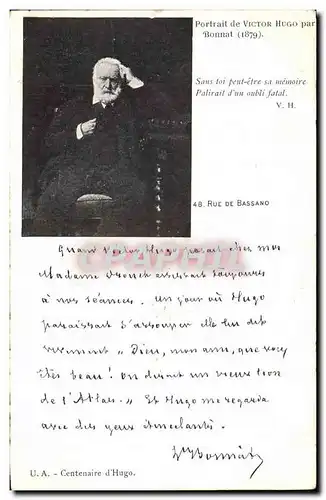 Portrait de VICTOR HUGO par
Bonnat (1879).
Sans toi peut-être sa mémoire
Palirait d'un oubli fatal.
V. H.
48. RUE DE BASSANO
Quand Victor Hugo posait chez moi
Madame Drouet assistait toujours
à nos séances. Un jour où Hugo
paraissait s'assoupir elle lui dit
vivement „ Dieu, mon ami, que vous
êtes beau! On dirait un vieux lion
de l'Atlas. „ Et Hugo me regarda
avec des yeux étincelants.
Ln Bonnat
U. A. - Centenaire d'Hugo.